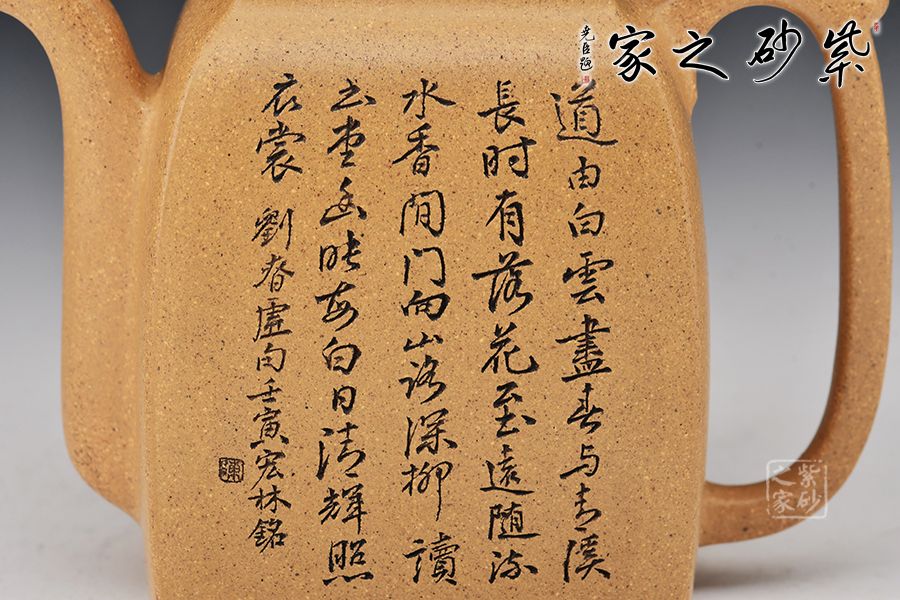 紫砂之家
堯臣題
道由白雲盡春与青溪
長时有落花至遠随流
水香閒门向山路深柳讀
书堂幽映每白日清輝照
衣裳 劉眘虛句壬寅宏林銘
紫砂
之家